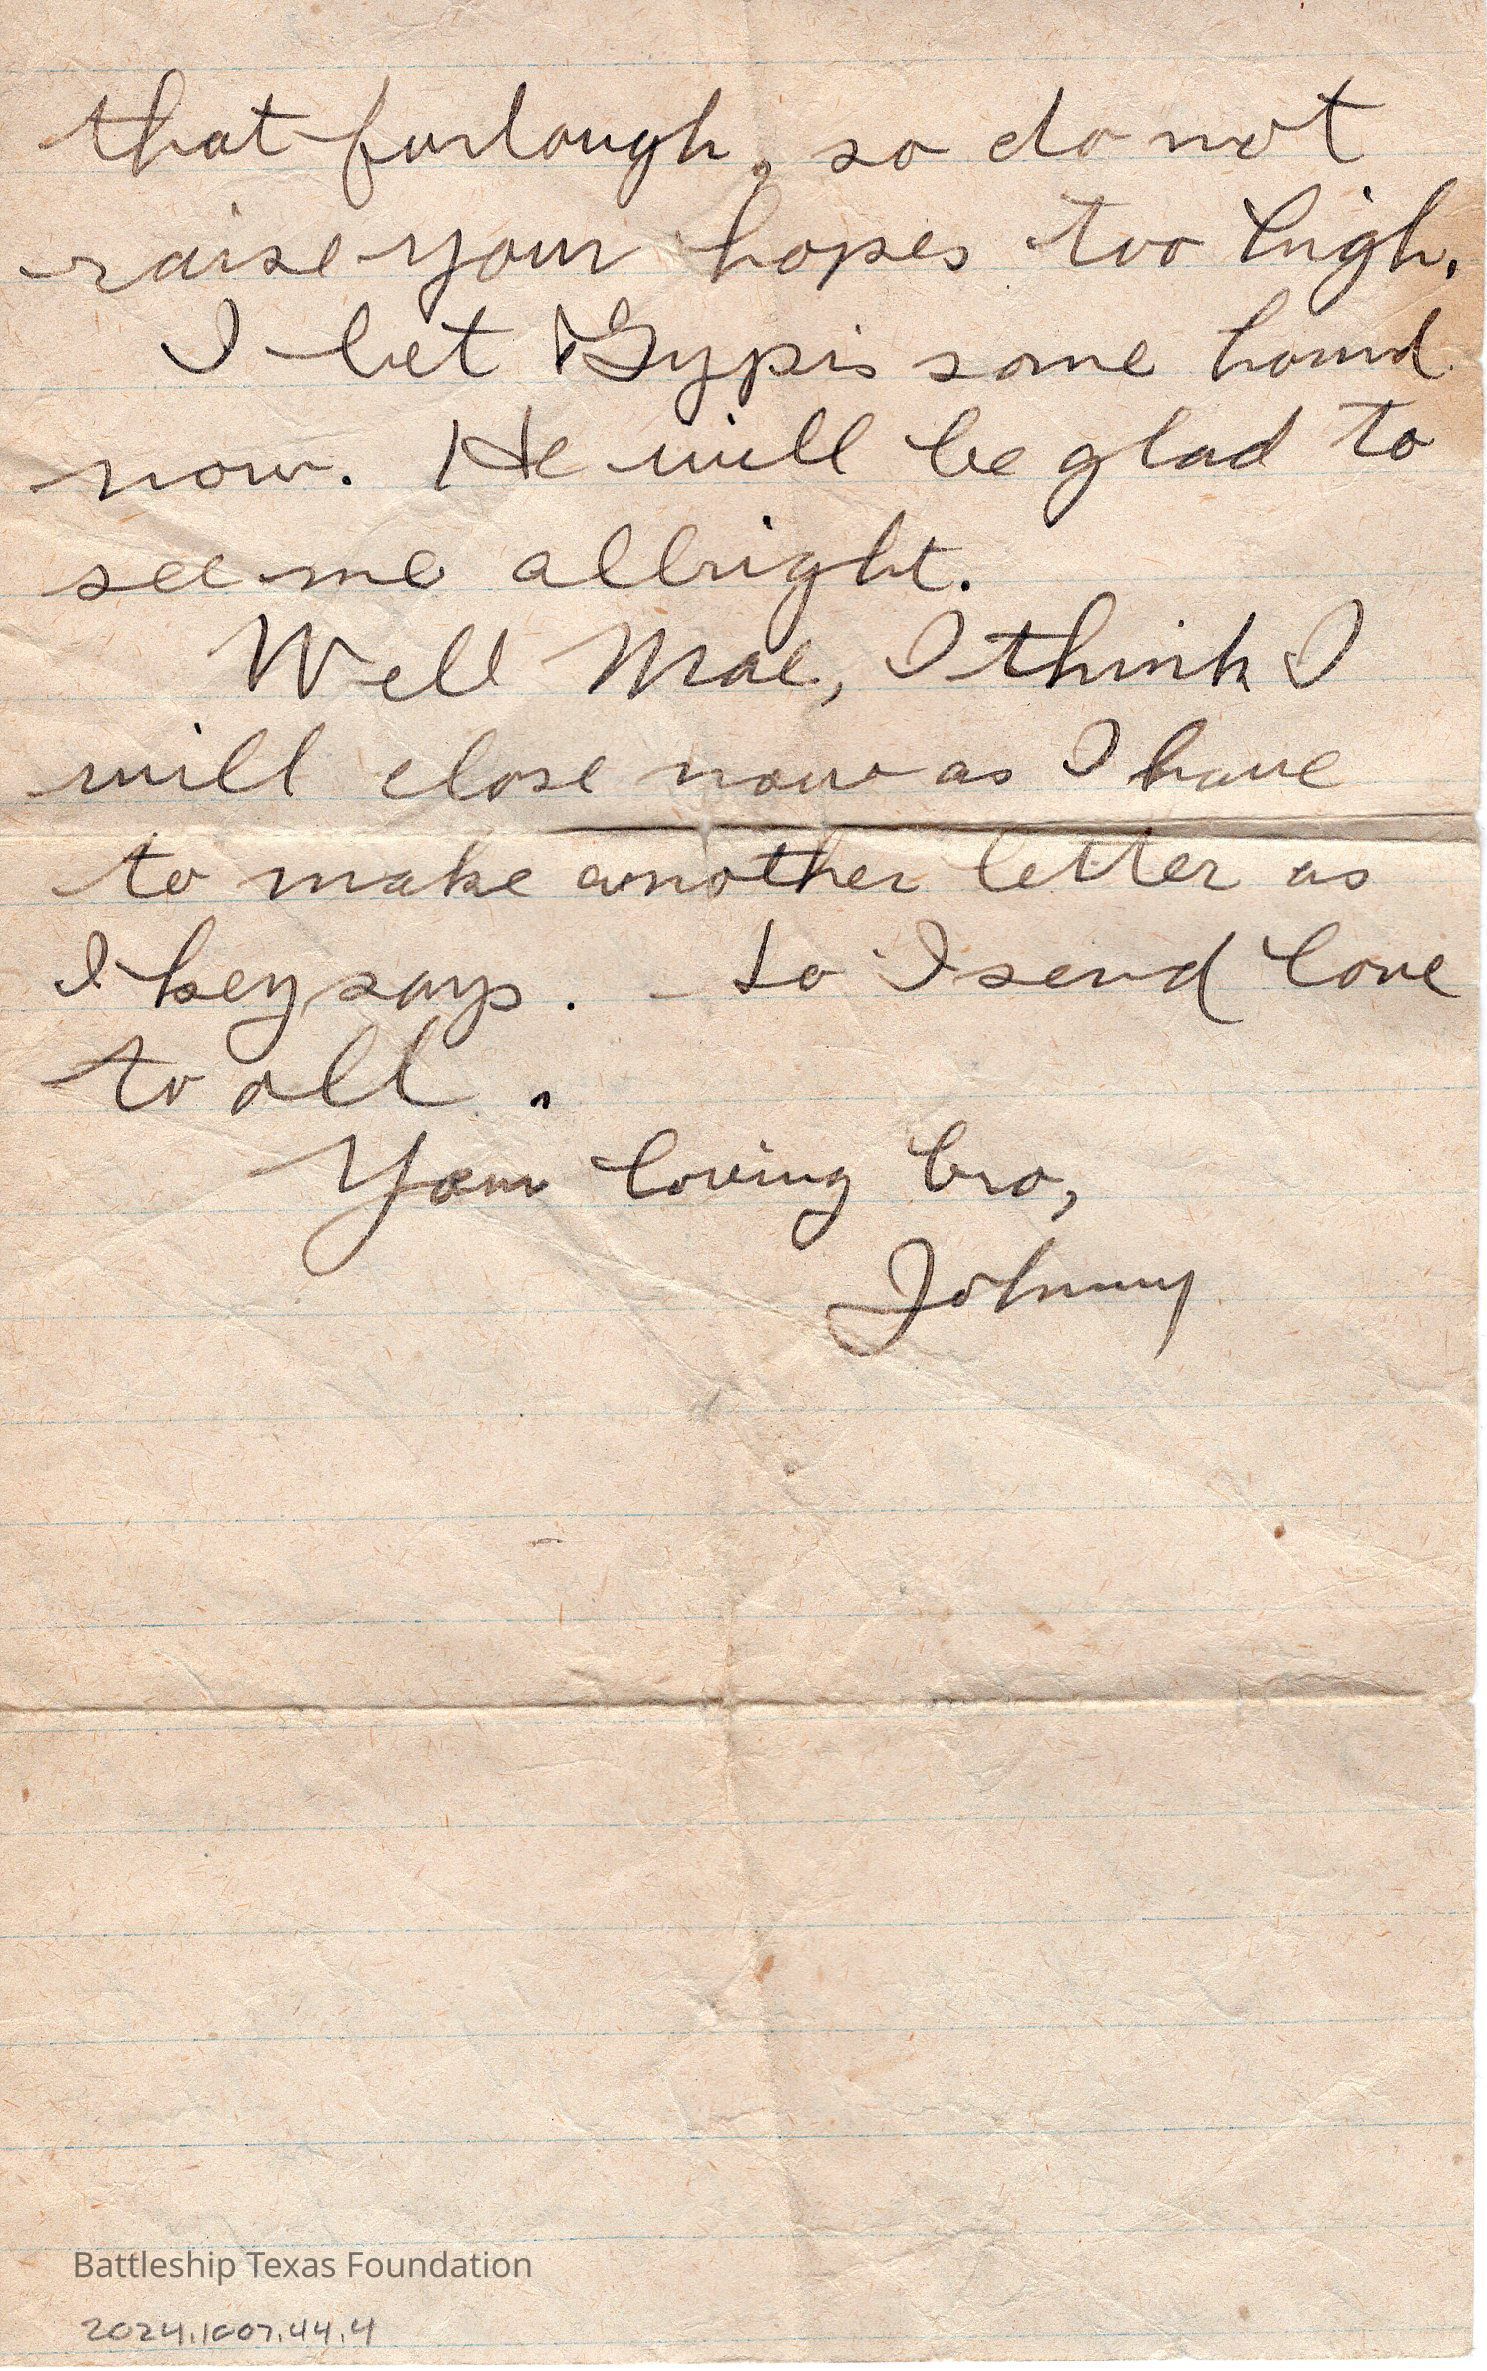 that furlough, so do not
raise your hopes too high.
I bet Gyp is some hound
now. He will be glad to
see me allright.
Well Mae, I think I
will close now as I have
to make another letter as
Ikey says. So I send love
to all.
Your loving bro,
Johnny
Battleship Texas Foundation
2024.1007.44.4